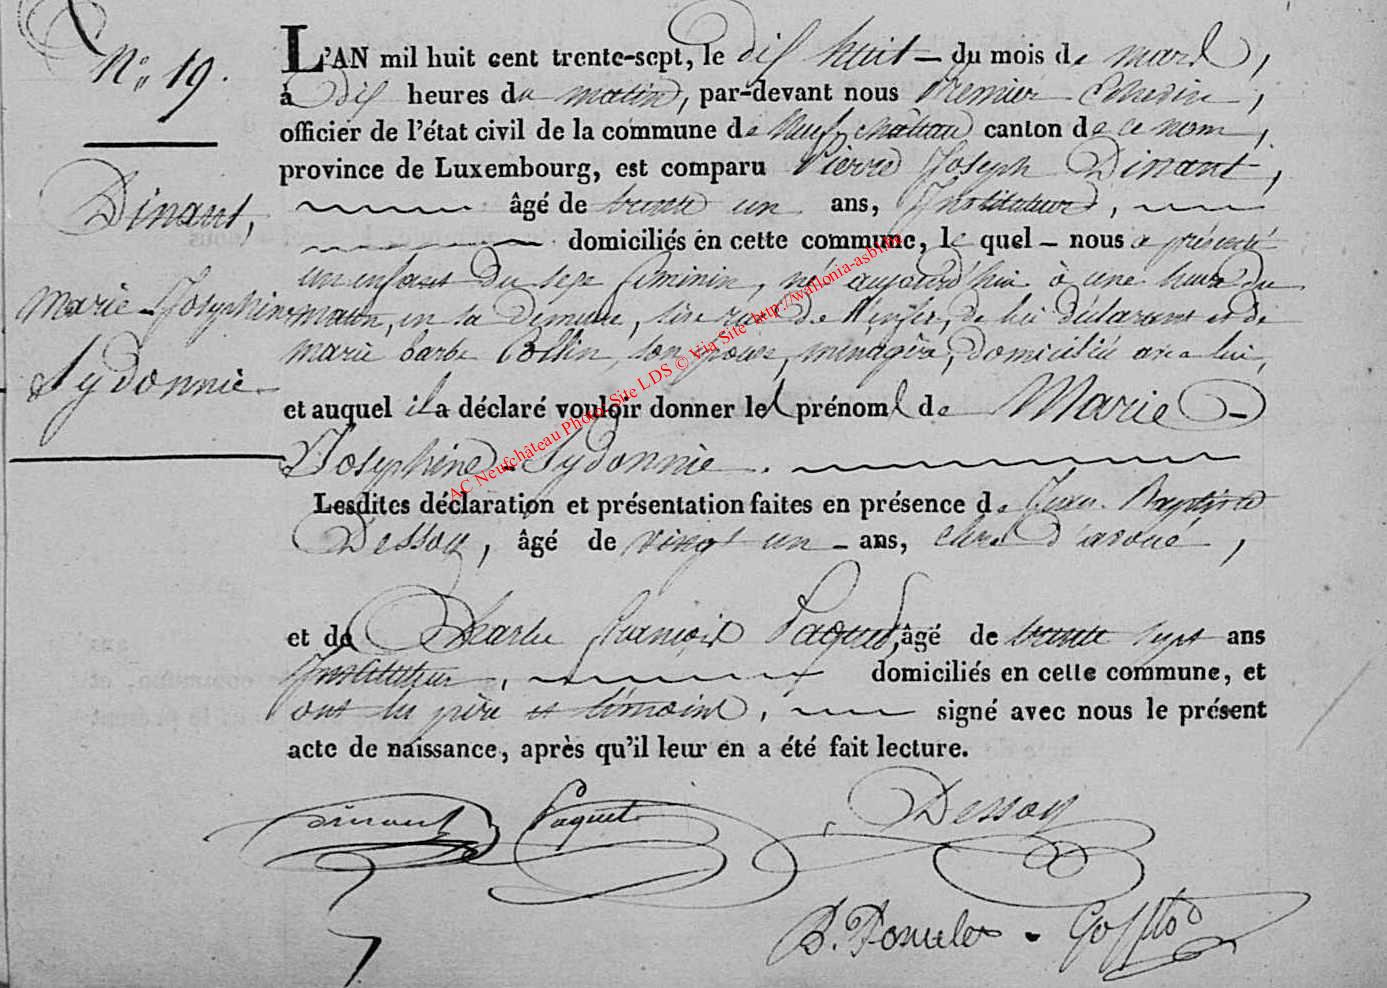 N.° 19.
Dinant,
Marie Josephine
Sydonnie
L'AN mil huit cent trente-sept, le dix huit — du mois de mars,
à dix heures du matin, par-devant nous premier Echevin,
officier de l'état civil de la commune de Neufchâteau canton de ce nom,
province de Luxembourg, est comparu Pierre Joseph Dinant,
âgé de trente un ans, Instituteur,
domiciliés en cette commune, lequel — nous a présenté
un enfant du sexe féminin, né aujourd'hui à une heure du
matin, en sa demeure, sise rue de l'enfer, de lui déclarant et de
marie barbe Collin, son épouse, ménagère, domiciliée avec lui,
et auquel il a déclaré vouloir donner les prénoms de Marie -
Josephine - Sydonnie.
Lesdites déclaration et présentation faites en présence de Jean Baptiste
Dessoy, âgé de vingt un - ans, clerc d'avoué,
et de Charles françois Paquet, âgé de trente sept ans
Instituteur, domiciliés en cette commune, et
ont les père et témoins, signé avec nous le présent
acte de naissance, après qu'il leur en a été fait lecture.
Dinant Paquet Dessoy
AC Neufchâteau Photo Site LDS © Via Site http://wallonia-asbl.be